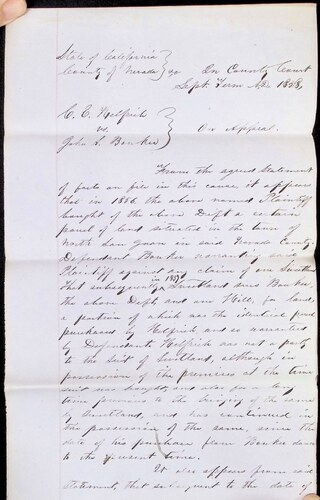 State of California }
County of Nevada } ss In County Court
Sept. Term A.D. 1858,
C. E. Helfrich }
vs. } On Appeal.
John S. Banker }
From the agreed statement
of facts on file in this cause, it appears
that in 1856, the above named Plaintiff
bought of the above Deft a certain
parcel of land situated in the town of
North San Juan in said Nevada County.
Defendant Banker warranty said
Plaintiff against any claim of one
That subsequently in 1857 sued Banker,
the above Deft, and one Hill, for land,
a portion of which was the identical
purchased by Helfrich and so warranted
by Defendant. Helfrich was not a party
to the suit of although in
possession of the premises at the time
suit was brought, and also for a long
time previous to the bringing of the same
by and has continued in
the possession of the same, since the
date of his purchase from Banker down
to the present time.
It also appears from said
statement, that subsequent to the date of